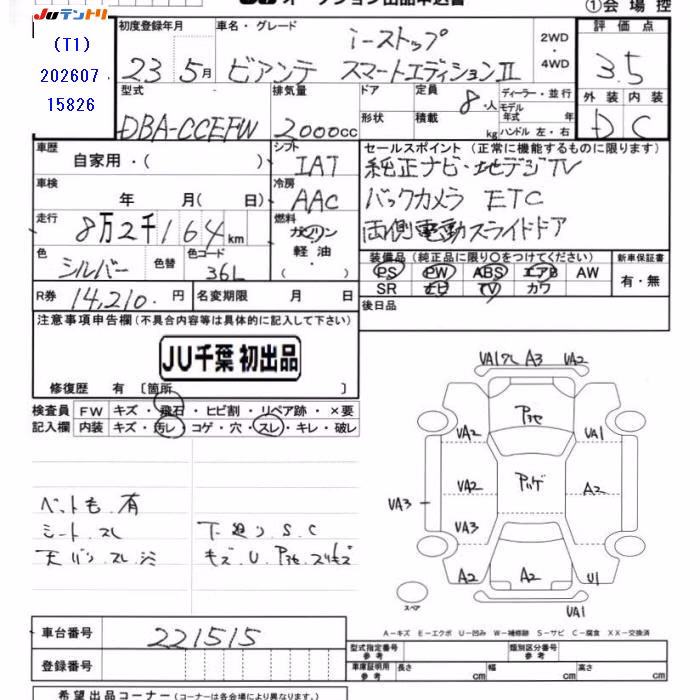 JUテントリ
(T1)
202607
15826
JU オークション出品申込書
①会場控
初度登録年月
23 5月
車名・グレード
i-ストップ
ビアンテ スマートエディションⅡ
2WD
・
4WD
評価点
3.5
外装 内装
D C
型式
DBA-CCEFW
排気量
2000cc
ドア
形状
定員
8・人
積載
kg
ディーラー・並行
モデル年式 年
ハンドル 左・右
車歴
自家用・( )
シフト
IAT
車検
年 月( 日)
冷房
AAC
走行
8万2千164km
燃料
ガソリン
軽油
・( )
色
シルバー
色替
色コード
36L
R券
14,210.円
名変期限 月 日
セールスポイント(正常に機能するものに限ります)
純正ナビ・地デジTV
バックカメラ ETC
両側電動スライドドア
装備品(純正品に限り○をつけてください)
PS PW ABS エアB AW
SR ナビ TV カワ
新車保証書
有・無
後日品
注意事項申告欄(不具合内容等は具体的に記入して下さい)
JU千葉 初出品
修復歴 有 〔箇所 〕
検査員記入欄
FW キズ・飛石・ヒビ割・リペア跡・×要
内装 キズ・汚レ・コゲ・穴・スレ・キレ・破レ
ペットも.有
シート.スレ
天バリ.スレ.シミ
下廻り S.C
キズ.U.
VA1 A3 VA2
VA2
VA1
VA2
A2
VA3
VA3
A2
A2
U1
VA1
スペア
A−キズ E−エクボ U−凹み W−補修跡 S−サビ C−腐食 XX−交換済
車台番号
221515
登録番号
型式指定番号
参考
類別区分番号
参考
車庫証明用
参考
長さ cm
幅 cm
高さ cm
希望出品コーナー(コーナーは各会場により異なります)